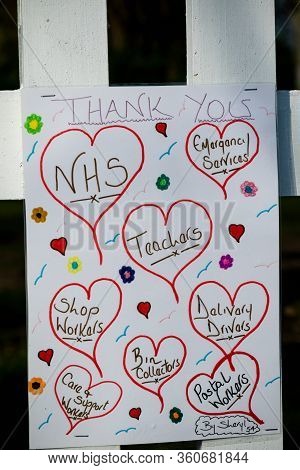 THANK YOUS
NHS
Emergency
Services
Teachers
Shop
Workers
Delivery
Drivers
Bin
Collectors
Care & Support
Workers
Postal
Workers
By Sheryl